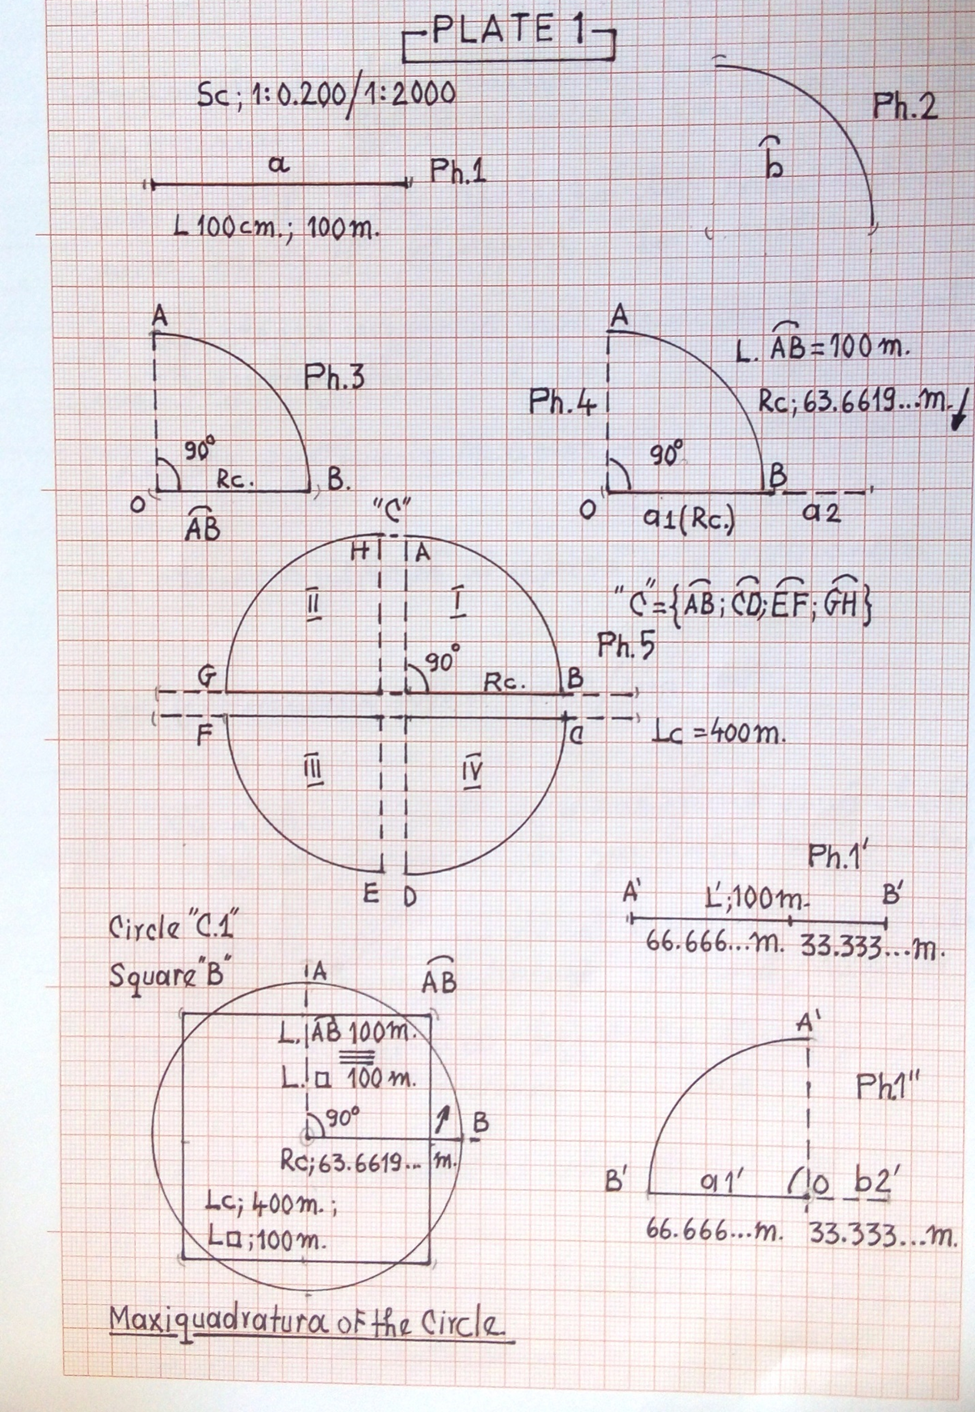 PLATE 1
Sc; 1:0.200/1:2000
Ph.2
a
Ph.1
b
L 100 cm.; 100 m.
A
Ph.3
90°
Rc.
B.
O
AB
A
L. AB = 100 m.
Ph.4
Rc; 63.6619...m.
90°
B
O
a1(Rc.)
a2
"C"
H
A
II
I
"C"={AB; CD; EF; GH}
Ph.5
90°
G
Rc.
B
F
C
Lc = 400 m.
III
IV
E
D
Ph.1'
A'
L'; 100 m.
B'
66.666...m.
33.333...m.
Circle "C.1"
Square "B"
A
AB
L. AB 100 m.
L. □ 100 m.
90°
B
Rc; 63.6619... m.
Lc; 400 m.;
L□; 100 m.
A'
Ph.1"
B'
a1'
O
b2'
66.666...m.
33.333...m.
Maxiquadratura of the Circle.